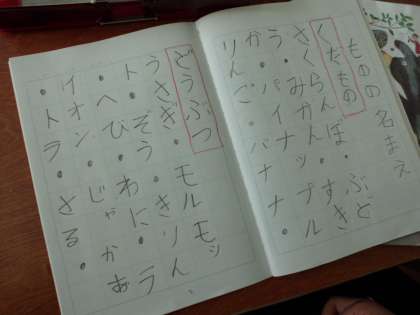 ものの名まえ
くだもの
さくらんぼ・ぶど
う・みかん・すき
か・パイナップル
りんご・バナナ。
どうぶつ
うさぎ・モルモッ
ト・ぞう・きりん、
・へび・わに・ラ
イオン・じゃかあ
・トラ・さる。